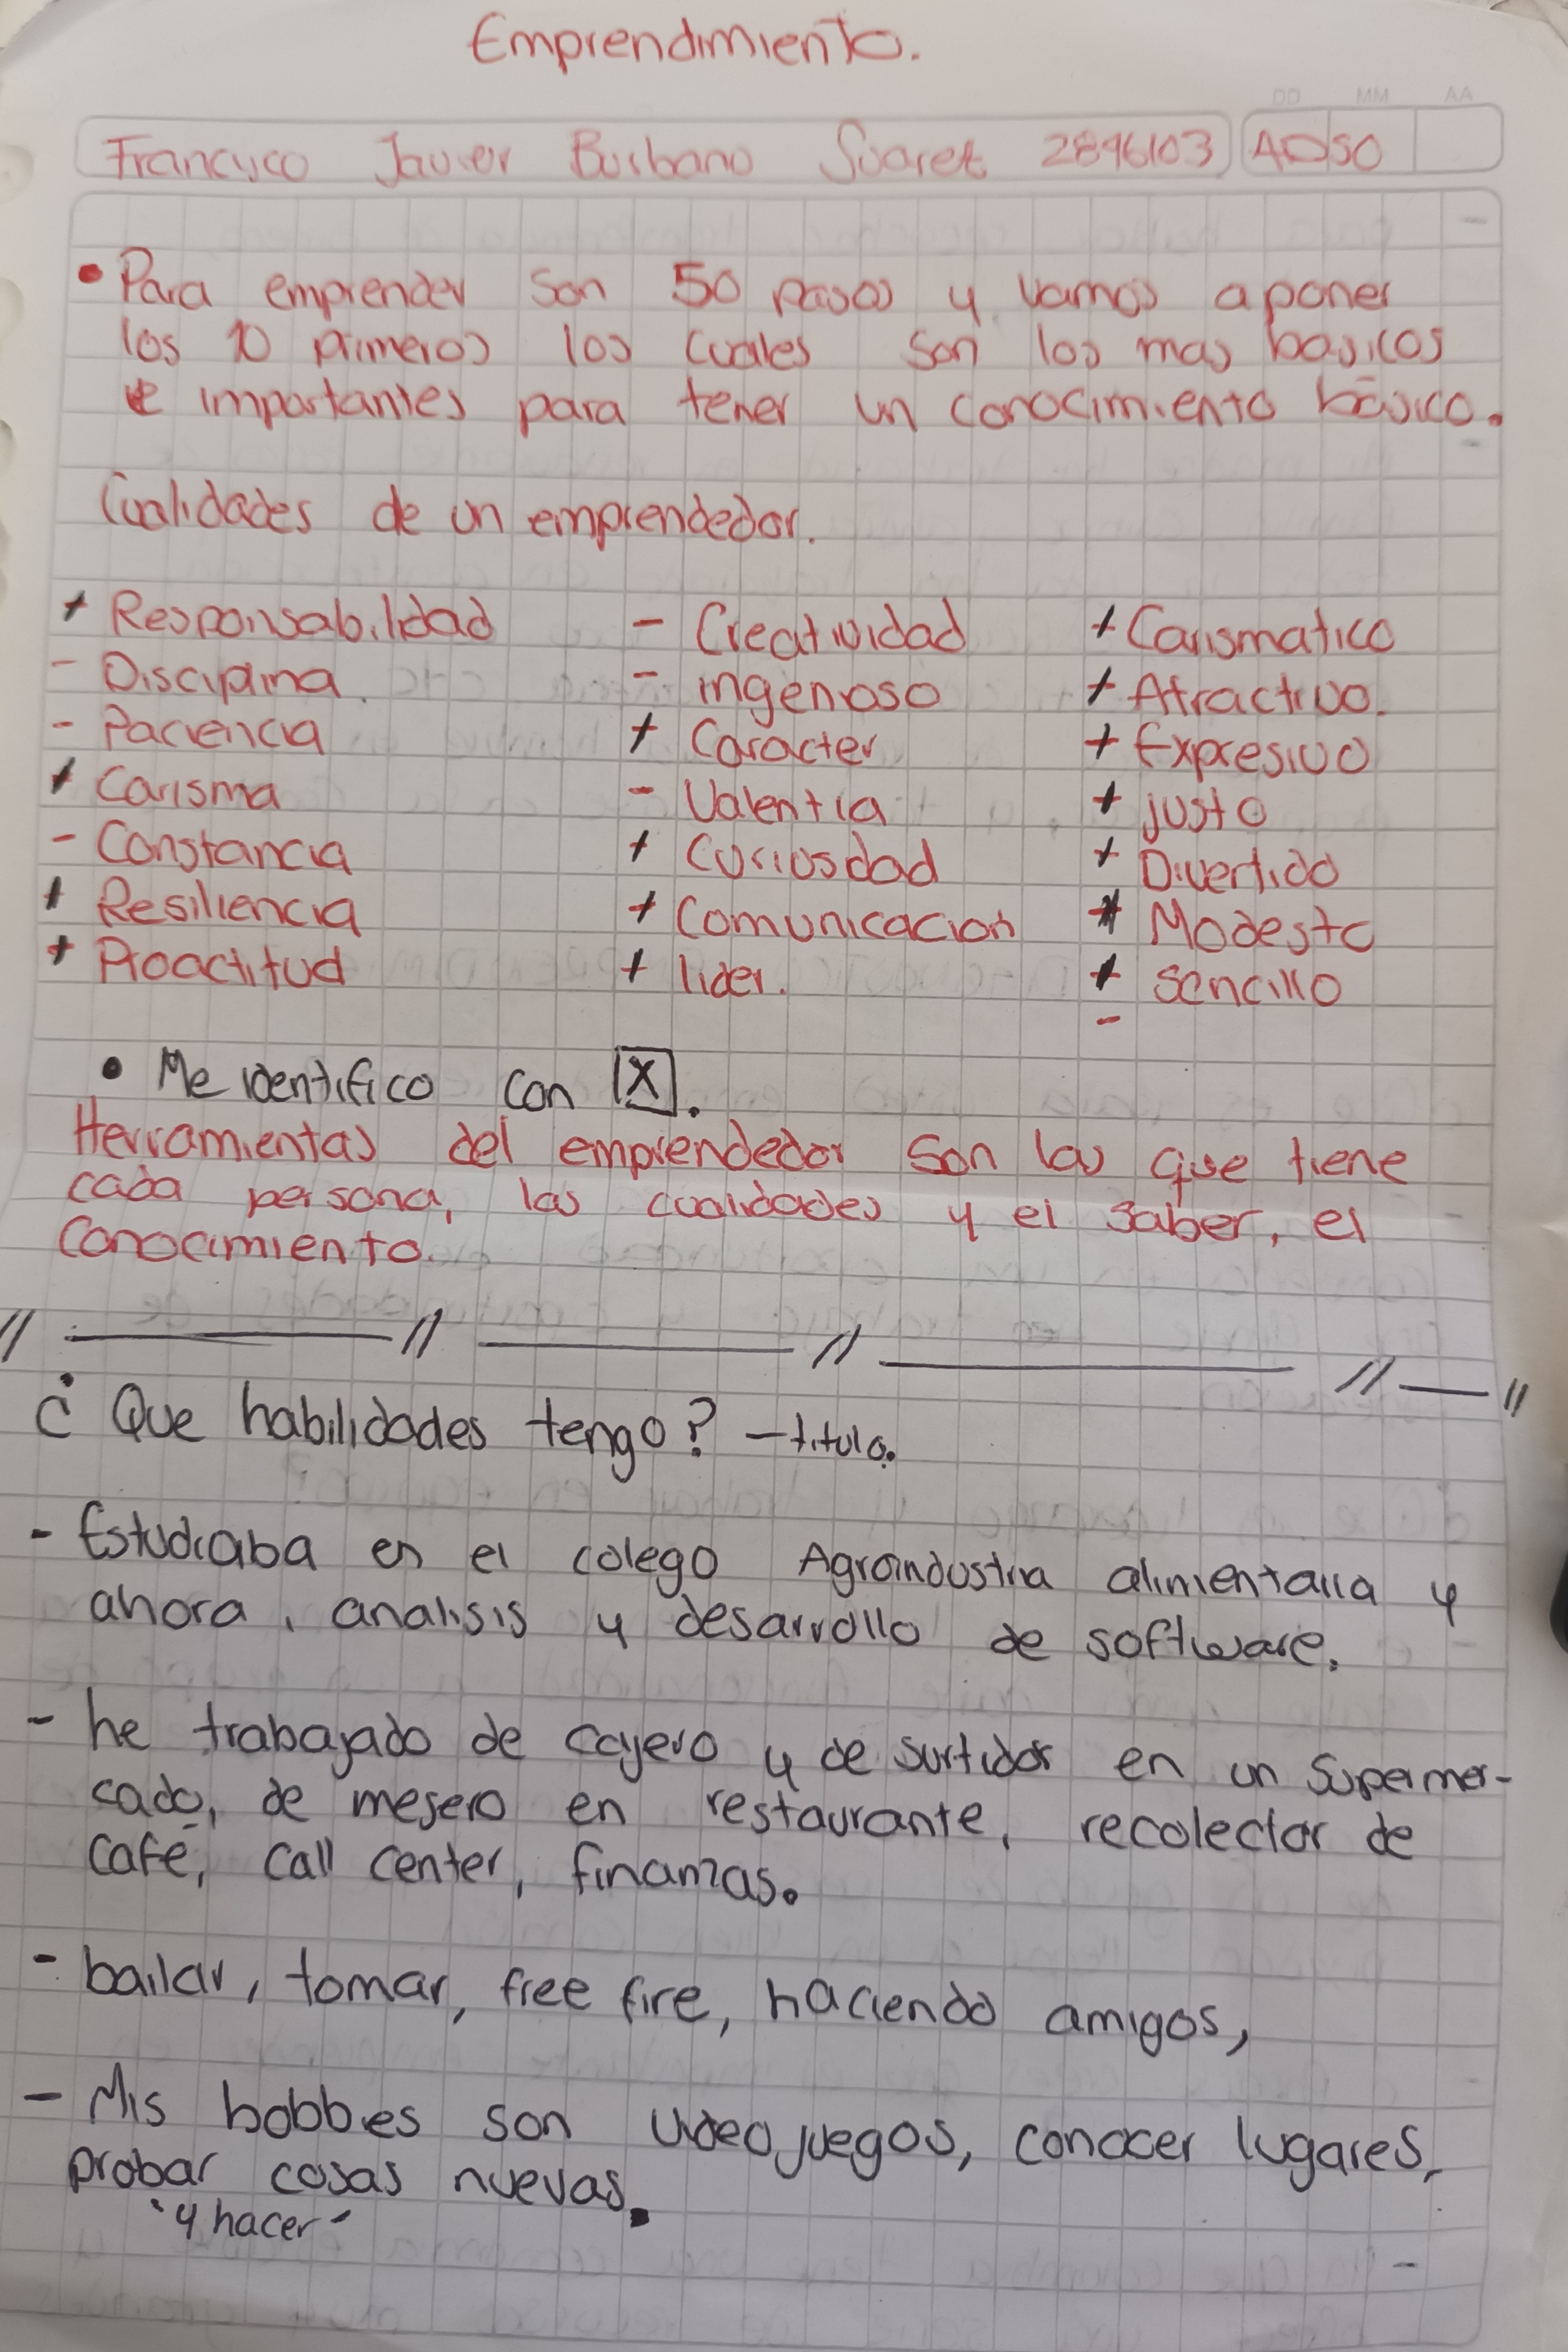 Emprendimiento.
DD MM AA
Francisco Javier Burbano Suarez 2896103 ADSO
• Para emprender son 50 pasos y vamos a poner
los 10 primeros los cuales son los mas basicos
e importantes para tener un conocimiento básico.
Cualidades de un emprendedor.
+ Responsabilidad - Creatividad + Carismatico
- Disciplina. - ingenioso + Atractivo.
- Paciencia + Caracter + Expresivo
+ Carisma - Valentia + justo
- Constancia + Curiosdad + Divertido
+ Resiliencia + Comunicacion + Modesto
+ Proactitud + lider. + Sencillo
-
• Me identifico con X.
Herramientas del emprendedor son las que tiene
cada persona, las cualidades y el saber, el
Conocimiento.
// ——— // ——— // ——— // — //
¿Que habilidades tengo? - titulo.
- Estudiaba en el colego Agroindustria alimentaria y
ahora, analisis y desarrollo de software.
- he trabajado de cajero y de surtidor en un Supermer-
cado, de mesero en restaurante, recolector de
café, call center, finanzas.
- bailar, tomar, free fire, haciendo amigos,
- Mis hobbies son videojuegos, conocer lugares,
probar cosas nuevas.
"y hacer"